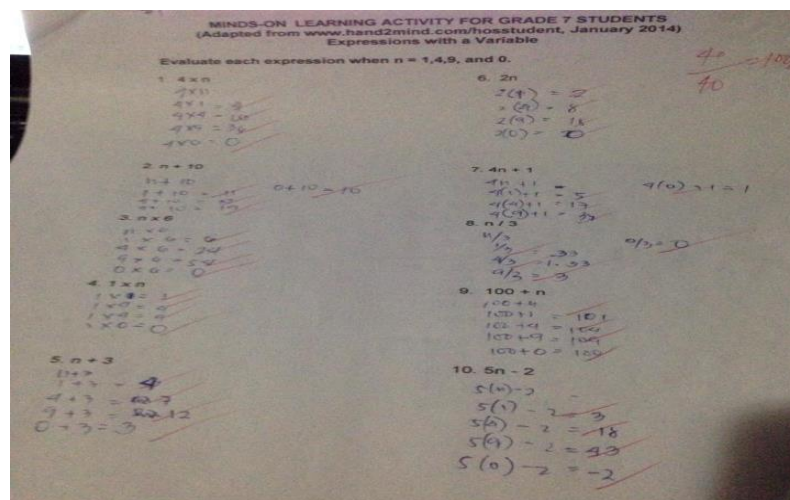 MINDS-ON LEARNING ACTIVITY FOR GRADE 7 STUDENTS
(Adapted from www.hand2mind.com/hosstudent, January 2014)
Expressions with a Variable
Evaluate each expression when n = 1,4,9, and 0.
40/40
1. 4 x n
4xn
4x1 = 4
4x4 = 16
4x9 = 36
4x0 = 0
2. n + 10
n + 10
1 + 10 = 11
0+10=10
3. n x 6
n x 6
1 x 6 = 6
4 x 6 = 24
9 x 6 = 54
0 x 6 = 0
4. 1 x n
1 x 1 = 1
1 x 4 = 4
1 x 9 = 9
1 x 0 = 0
5. n + 3
n+3
1+3 = 4
4+3 = 7
9+3 = 12
0+3=3
6. 2n
2(1) = 2
2(4) = 8
2(9) = 18
2(0) = 0
7. 4n + 1
4n+1 =
4(1)+1 = 5
4(4)+1 = 17
4(9)+1 = 37
4(0)+1=1
8. n / 3
n/3
1/3 = .33
4/3 = 1.33
9/3 = 3
0/3=0
9. 100 + n
100+n
100+1 = 101
100+4 = 104
100+9 = 109
100+0 = 100
10. 5n - 2
5(n)-2
5(1) - 2 = 3
5(4) - 2 = 18
5(9) - 2 = 43
5(0) - 2 = -2